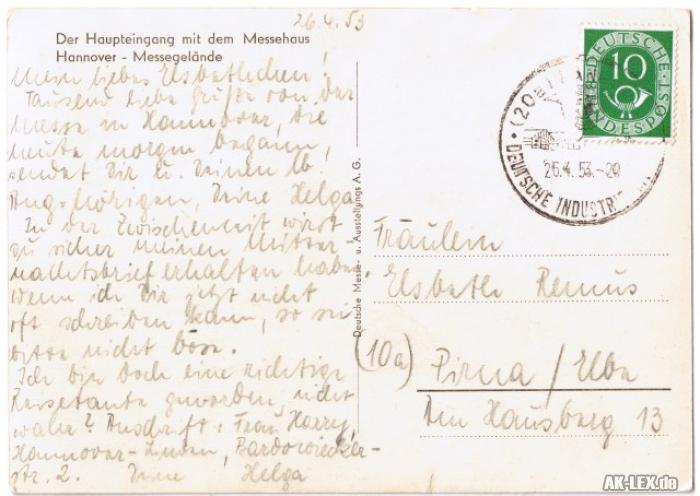 26.4.53
Der Haupteingang mit dem Messehaus
Hannover - Messegelände
Mein liebes Elsbethchen!
Tausend liebe Grüße von der
Messe in Hannover, die
heute morgen begann,
sendet Dir u. Deinen lb.
Angehörigen, Deine Helga
In der Zwischenzeit wirst
Du sicher meinen Mitter-
nachtsbrief erhalten haben.
Wenn ich Dir jetzt nicht
oft schreiben kann, so sei
bitte nicht böse.
Ich bin doch eine richtige
geworden, nicht
wahr? Anschrift: Frau Harry,
Hannover-Linden, Bardowiecker-
str. 2. Deine Helga
Deutsche Messe- u. Ausstellungs A. G.
DEUTSCHE
10
BUNDESPOST
(20a)
26.4.53.-20
DEUTSCHE INDUSTRIE
Fräulein
Elsbeth Remus
(10a) Pirna / Elbe
Am Hausberg 13
AK-LEX.de